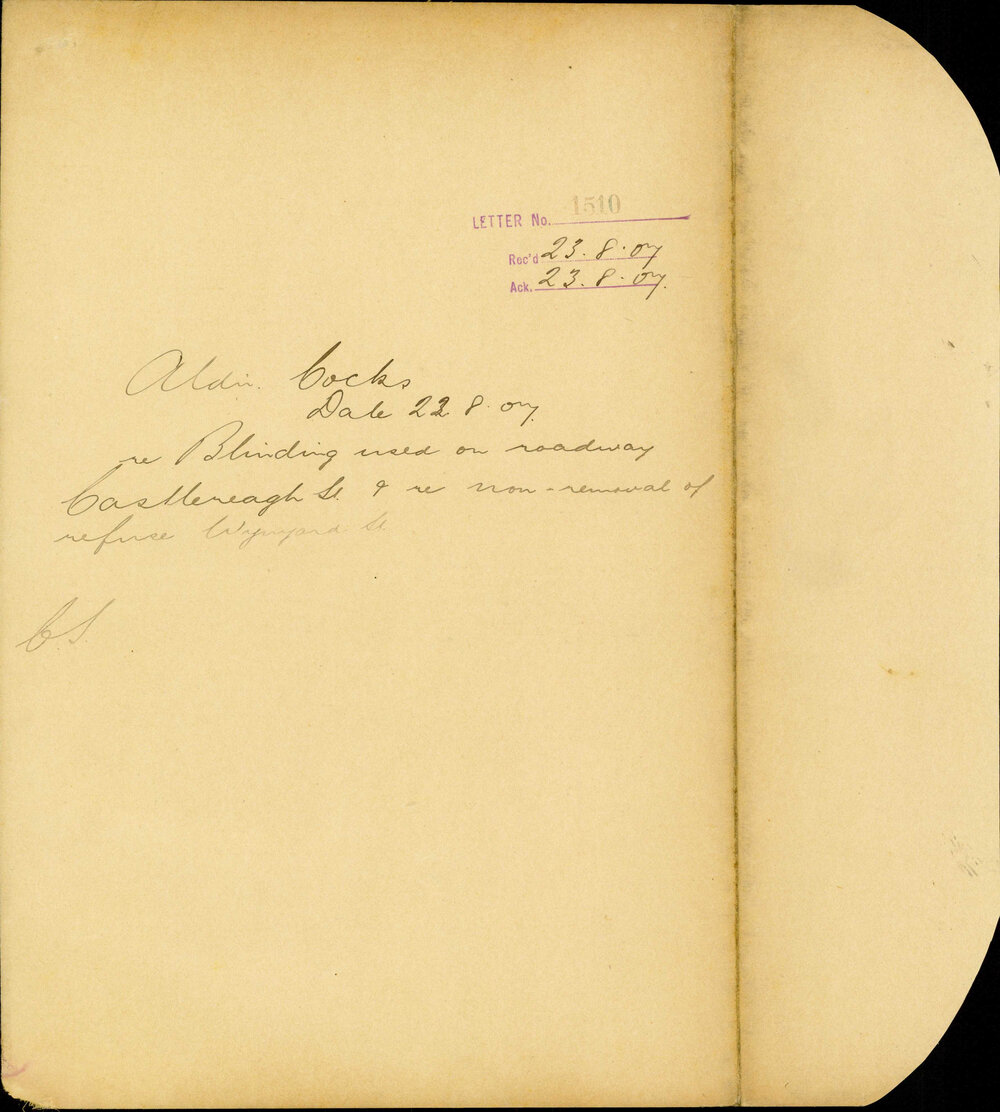 LETTER No. 1510
Rec'd 23.8.07
Ack. 23.8.07
Aldn. Cocks
Date 22.8.07
re Blinding used on roadway
Castlereagh St. & re non-removal of
refuse Wynyard St
C.S.